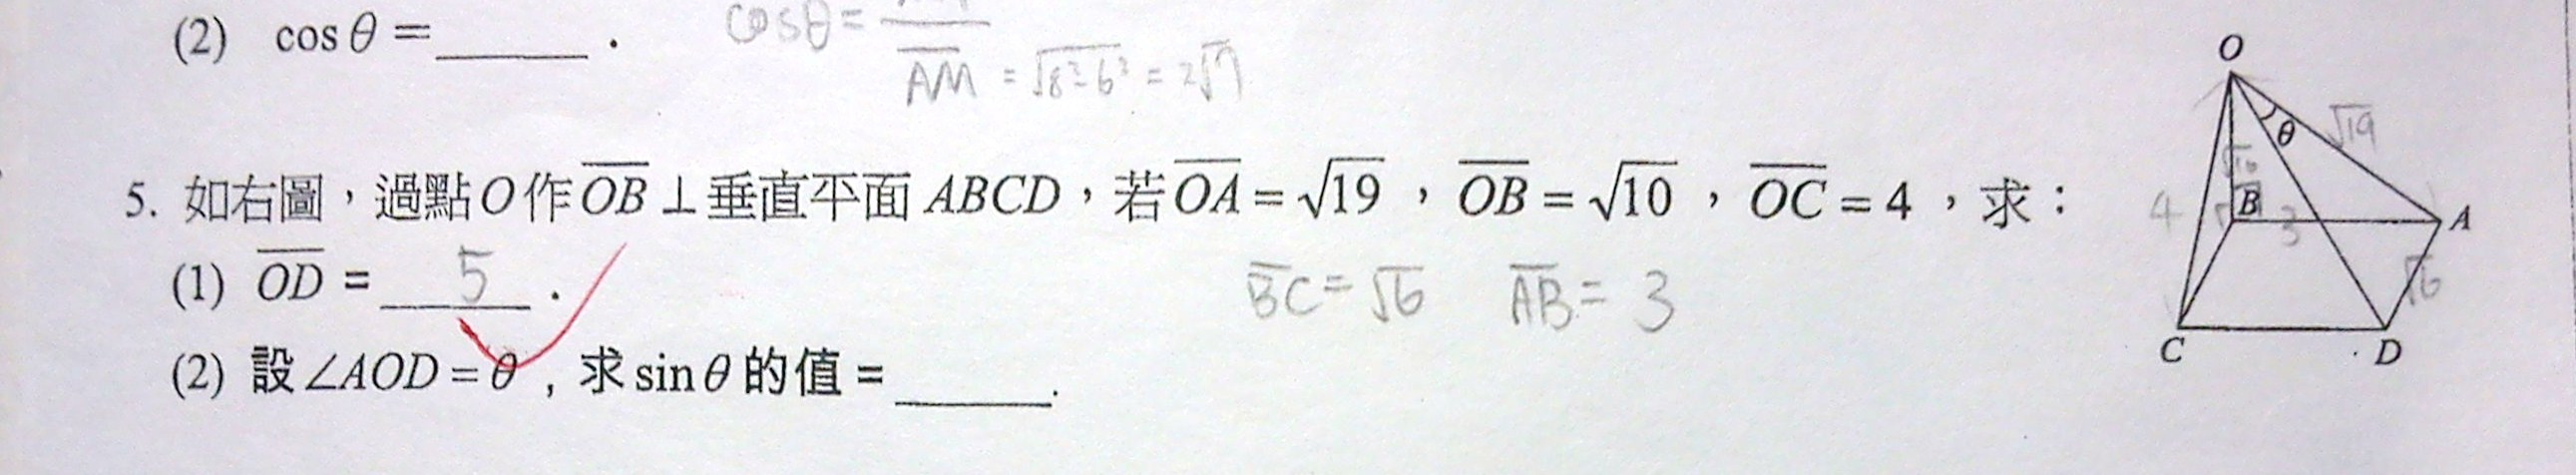 (2) cos θ = ______ .
cosθ =
AM = √8²-6² = 2√7
5. 如右圖，過點O作OB⊥垂直平面ABCD，若OA=√19，OB=√10，OC=4，求：
(1) OD = 5 .
BC = √6 AB = 3
(2) 設∠AOD=θ , 求sinθ的值= ______.
O
θ
√19
√10
4
B
3
A
√6
C
D